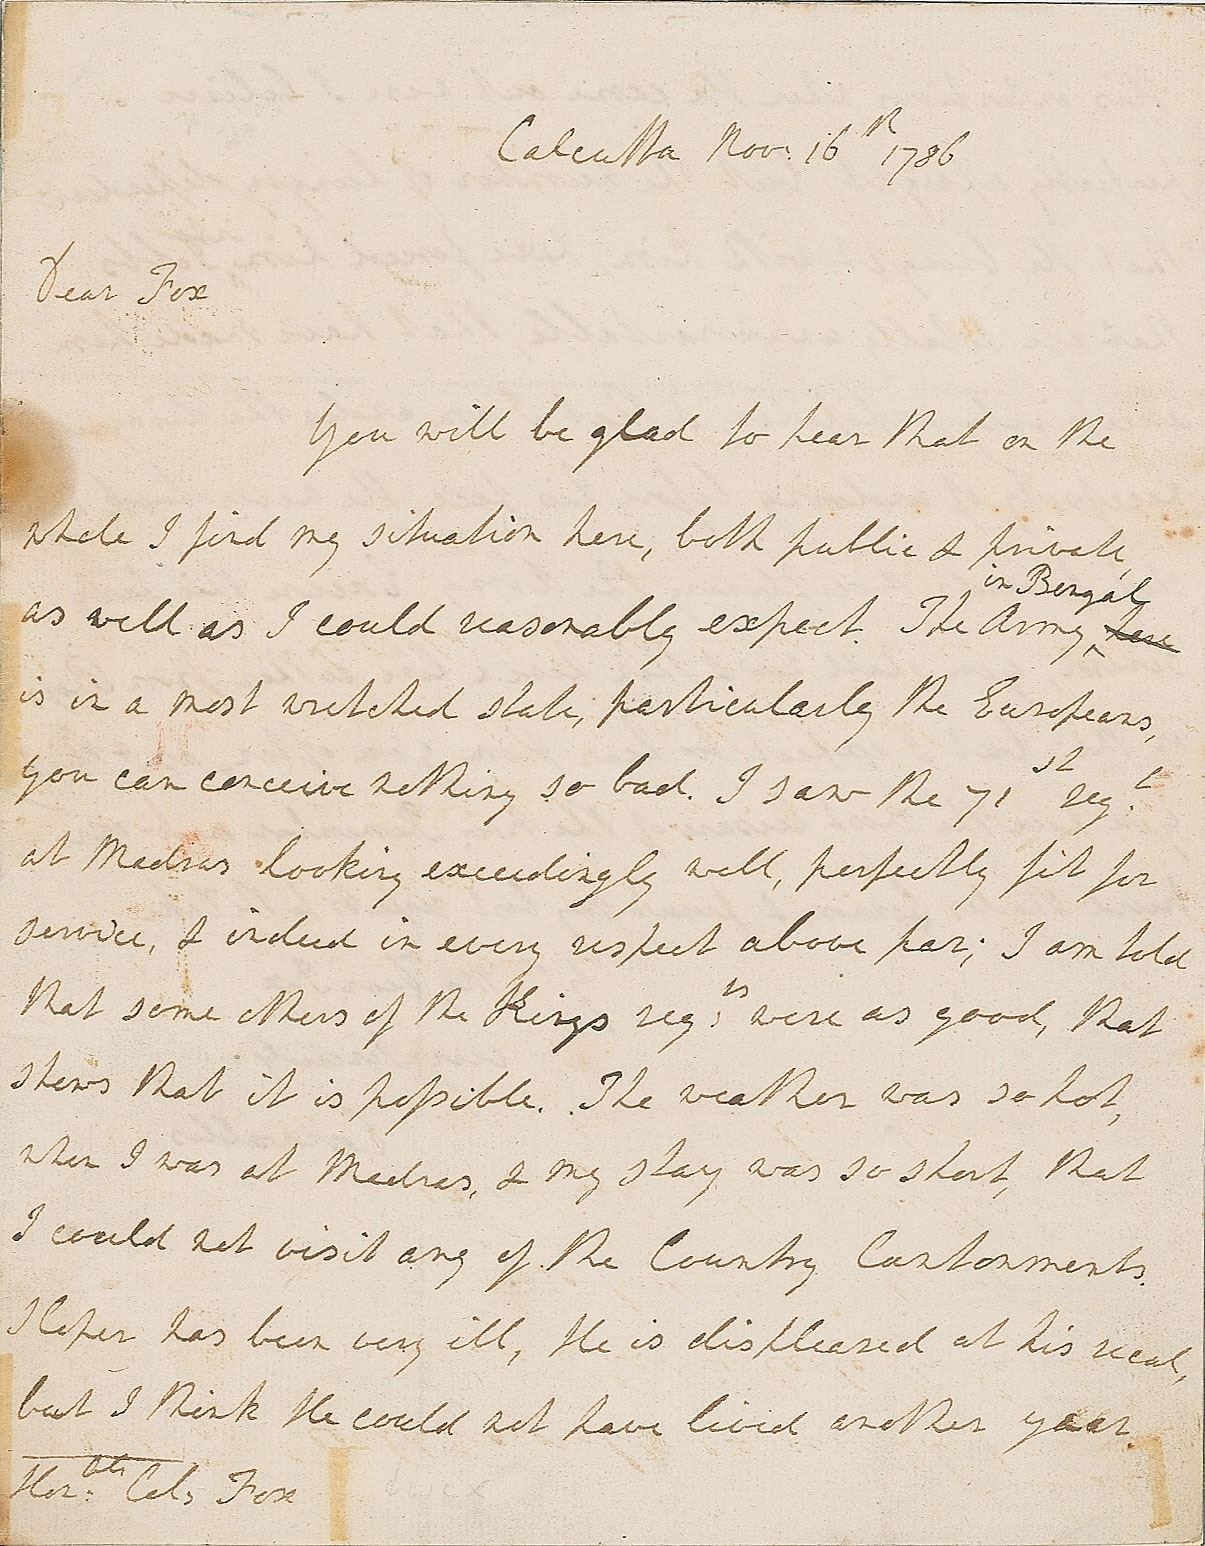 Calcutta Nov: 16th 1786
Dear Fox
You will be glad to hear that on the
whole I find my situation here, both public & private,
as well as I could reasonably expect. The Army ^in Bengal here
is in a most wretched state, particularly the Europeans,
you can conceive nothing so bad. I saw the 71st regt
at Madras looking exceedingly well, perfectly fit for
service, & indeed in every respect above par; I am told
that some others of the Kings regts were as good, that
shews that it is possible. The weather was so hot,
when I was at Madras, & my stay was so short, that
I could not visit any of the Country Cantonments.
Sloper has been very ill, He is displeased at his recal,
but I think He could not have lived another year.
Honble Col: Fox